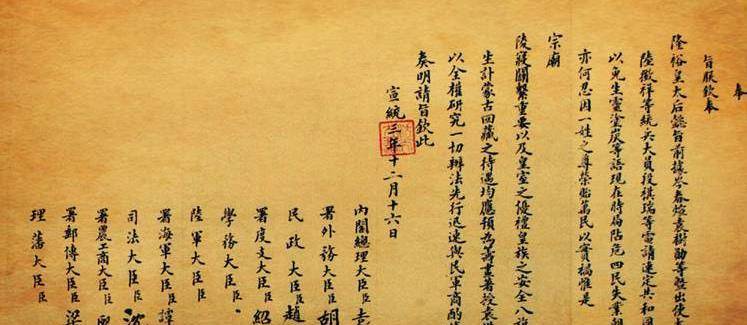 奉
旨朕欽奉
隆裕皇太后懿旨前據岑春煊袁樹勛等暨出使大
陸徵祥等統兵大員段祺瑞等電請速定共和國
以免生靈塗炭等語現在時局阽危四民失業朝
亦何忍因一姓之尊榮貽萬民以實禍惟是
宗廟
陵寢關繫重要以及皇室之優禮皇族之安全八旗
生計蒙古回藏之待遇均應預為籌畫著授袁世
以全權研究一切辦法先行迅速與民軍商酌
奏明請旨欽此
宣統三年十二月十六日
內閣總理大臣臣袁
署外務大臣臣胡
民政大臣臣趙
署度支大臣臣紹
學務大臣臣
陸軍大臣臣
署海軍大臣臣譚
司法大臣臣沈
署農工商大臣臣熙
署郵傳大臣臣梁
理藩大臣臣